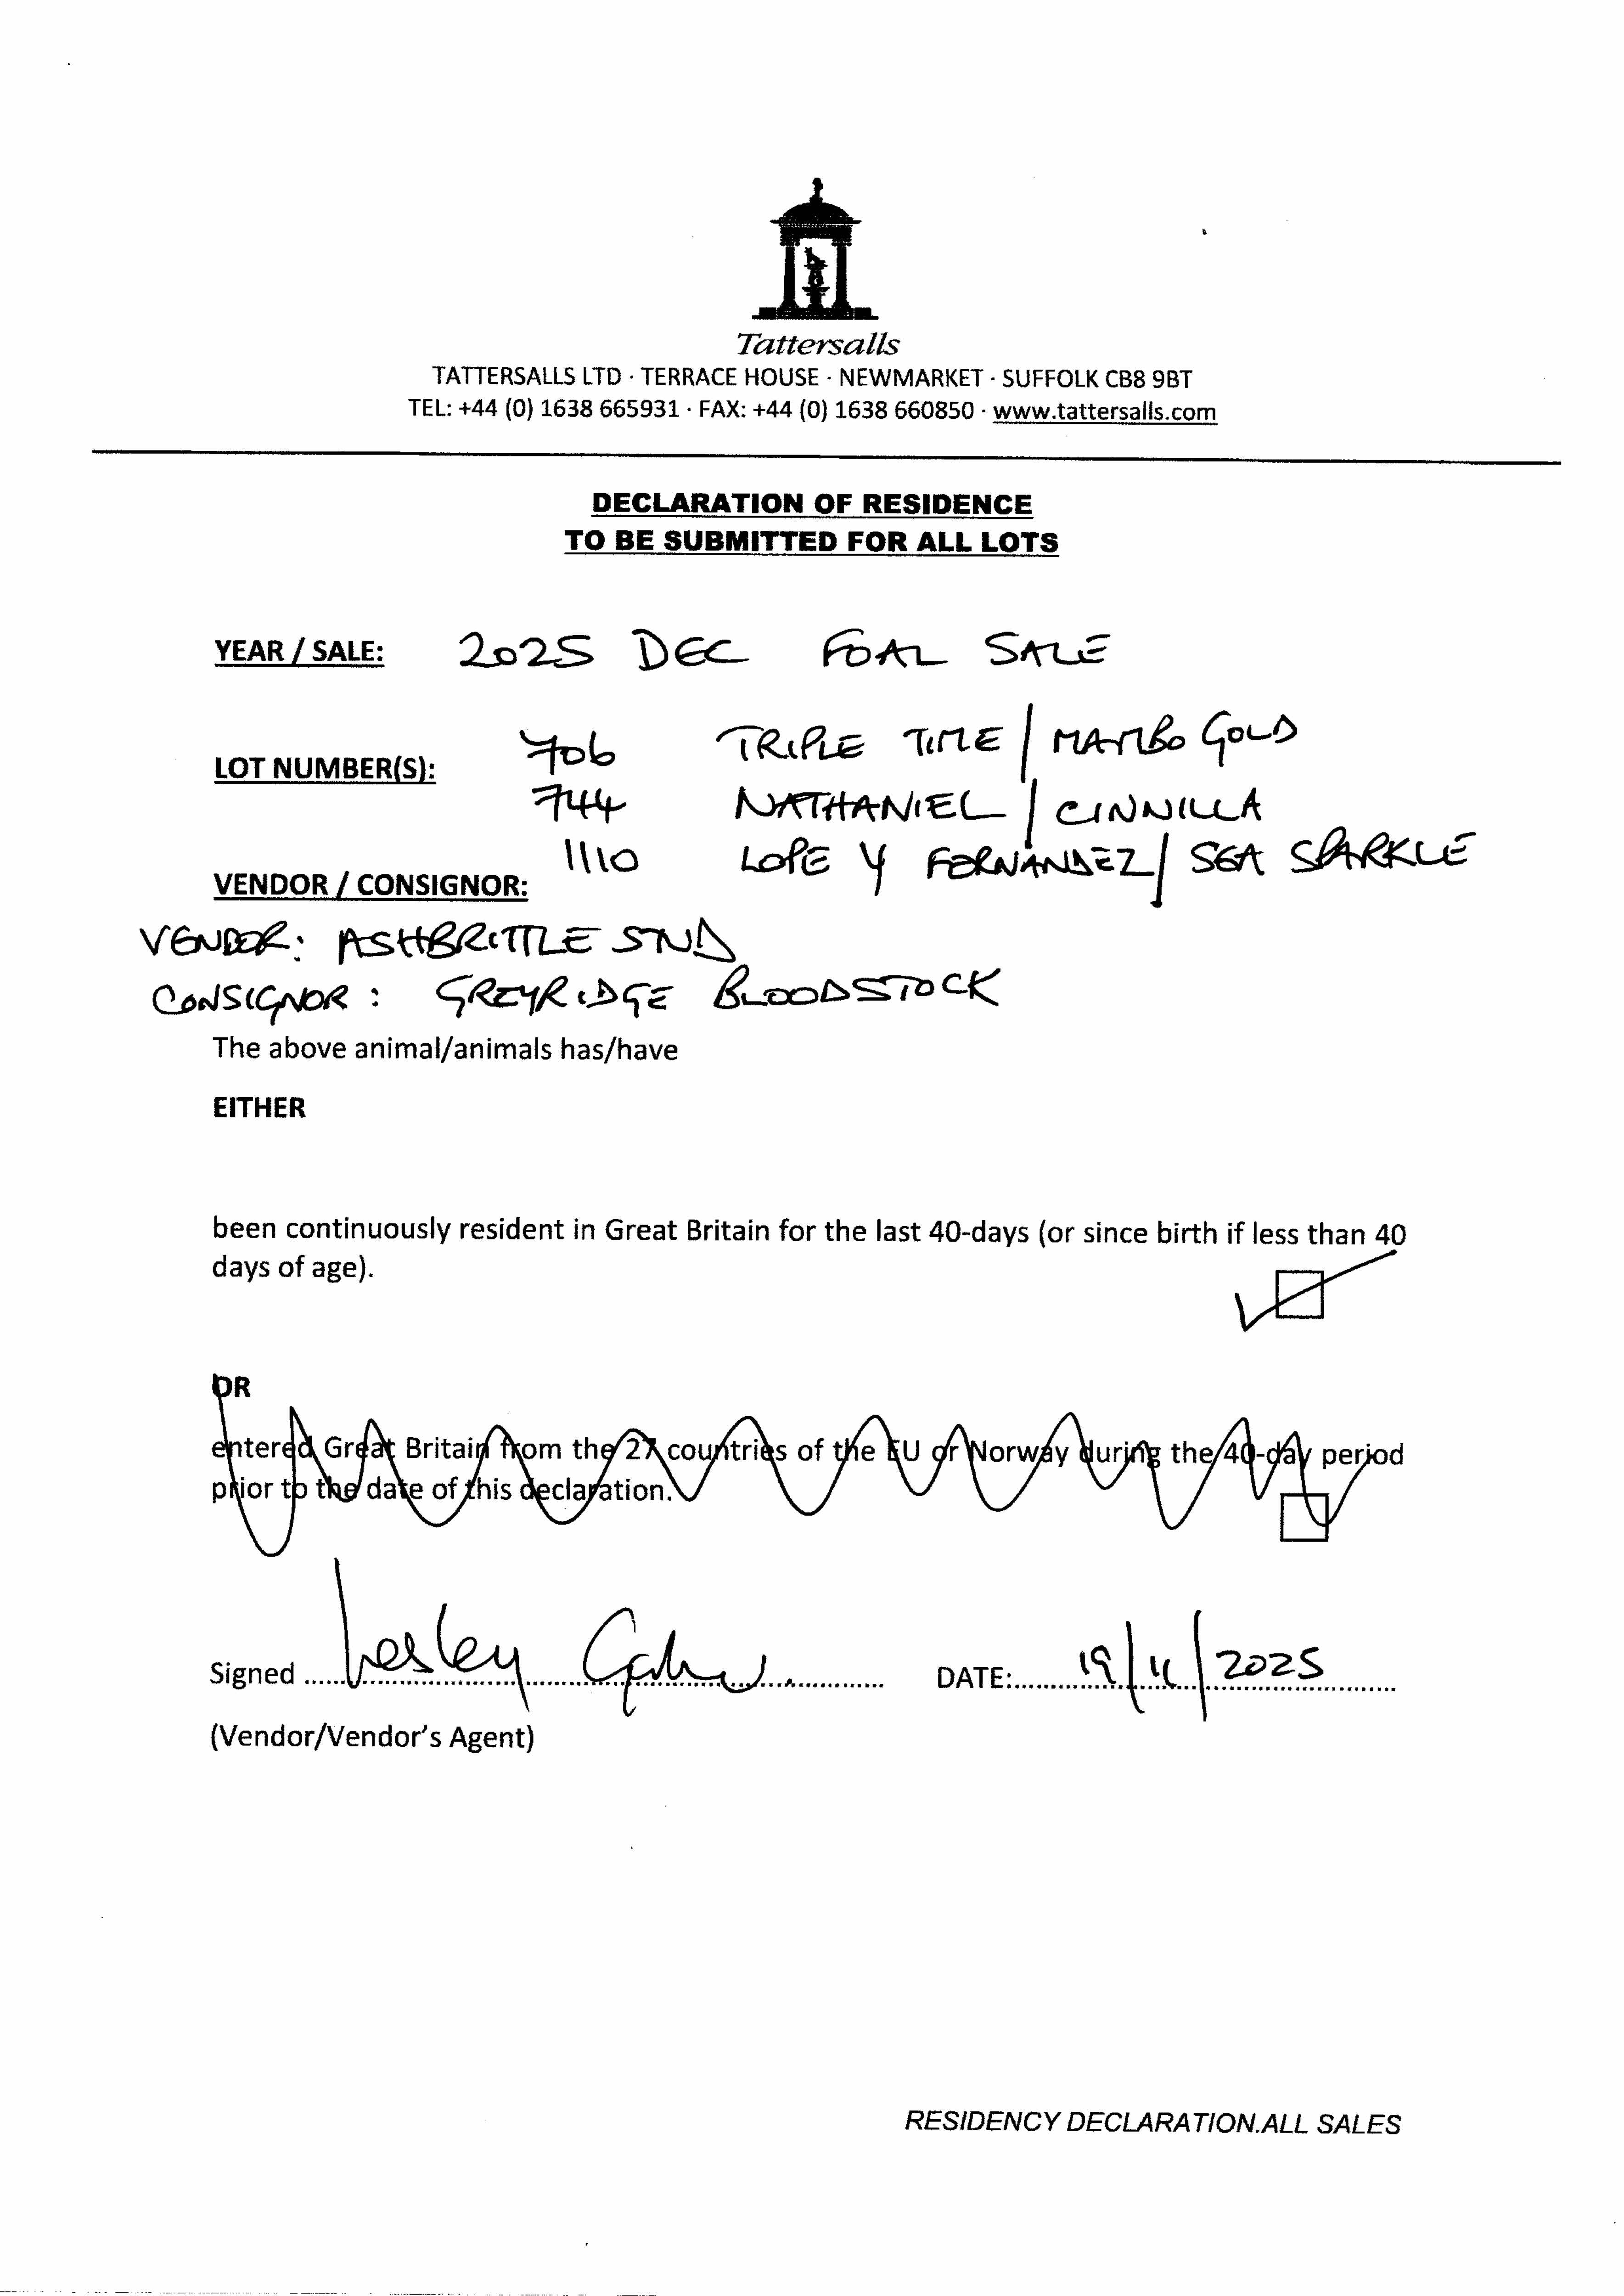 Tattersalls
TATTERSALLS LTD · TERRACE HOUSE · NEWMARKET · SUFFOLK CB8 9BT
TEL: +44 (0) 1638 665931 · FAX: +44 (0) 1638 660850 · www.tattersalls.com
DECLARATION OF RESIDENCE
TO BE SUBMITTED FOR ALL LOTS
YEAR / SALE: 2025 DEC FOAL SALE
LOT NUMBER(S): 706 TRIPLE TIME / MAMBO GOLD
744 NATHANIEL / CINNILLA
1110 LOPE Y FERNANDEZ / SEA SPARKLE
VENDOR / CONSIGNOR:
VENDOR: ASHBRITTLE STUD
CONSIGNOR: GREYRIDGE BLOODSTOCK
The above animal/animals has/have
EITHER
been continuously resident in Great Britain for the last 40-days (or since birth if less than 40
days of age).
OR
entered Great Britain from the 27 countries of the EU or Norway during the 40-day period
prior to the date of this declaration.
Signed Lesley DATE: 19/11/2025
(Vendor/Vendor's Agent)
RESIDENCY DECLARATION.ALL SALES